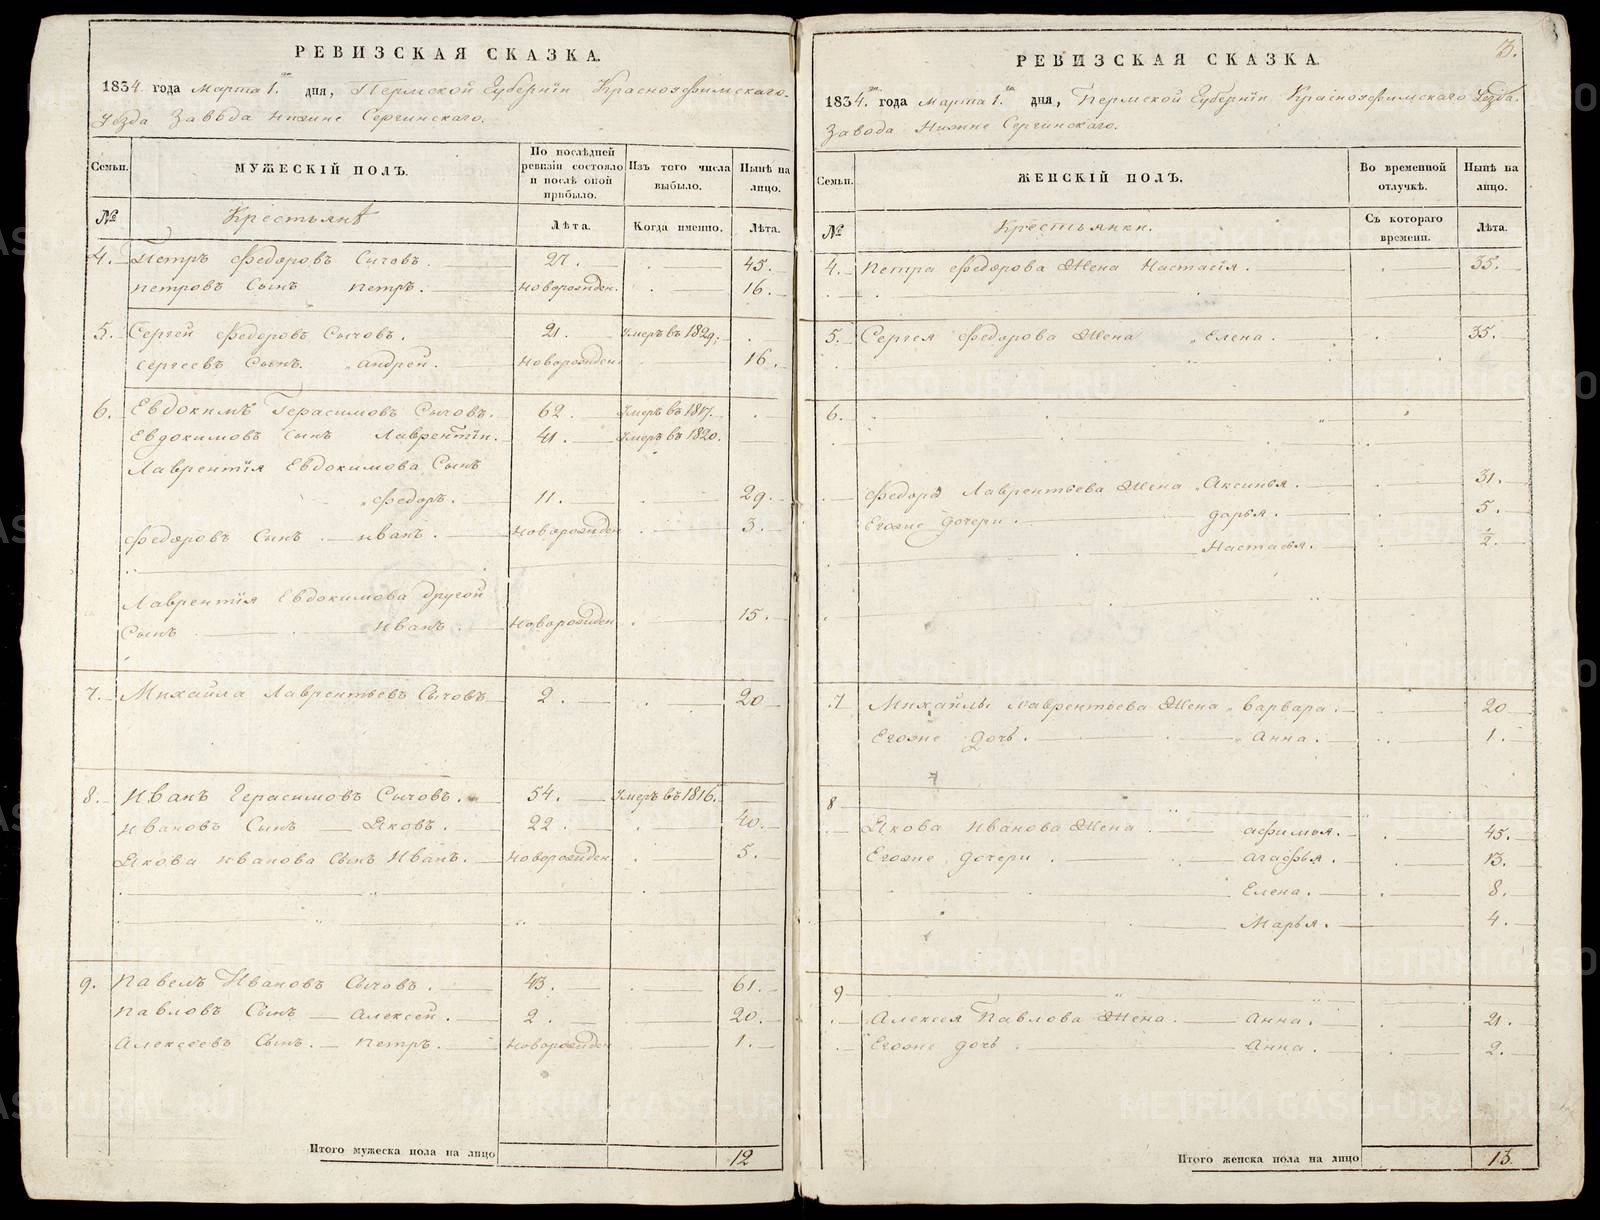 РЕВИЗСКАЯ СКАЗКА.
1834. года Марта 1. дня, Пермской Губернiи Красноуфимскаго
Уѣзда Завода Нижне Сергинскаго.
Семьи.
МУЖЕСКIЙ ПОЛЪ.
По послѣдней
ревизiи состояло
и послѣ оной
прибыло.
Изъ того числа
выбыло.
Нынѣ на
лицо.
№
Крестьянѣ
Лѣта.
Когда именно.
Лѣта.
4. Петръ Федоровъ Сычовъ. 27. 45.
Петровъ Сынъ Петръ. Новорожден. 16.
5. Сергей Федоровъ Сычовъ. 21. Умеръ въ 1829.
Сергеевъ Сынъ. Андрей. Новорожден 16.
6. Евдокимъ Герасимовъ Сычовъ. 62. Умеръ въ 1817.
Евдокимовъ Сынъ Лаврентiи. 41. Умеръ въ 1820.
Лаврентiя Евдокимова Сынъ
Федоръ. 11. 29.
Федоровъ Сынъ Иванъ. Новорожден 3.
Лаврентiя Евдокимова другой
Сынъ Иванъ. Новорожден 15.
7. Михайла Лаврентьевъ Сычовъ 2. 20
8. Иванъ Герасимовъ Сычовъ. 54. Умеръ въ 1816.
Ивановъ Сынъ Яковъ. 22. 40.
Якова Иванова Сынъ Иванъ. Новорожден 5.
9. Павелъ Ивановъ Сычовъ. 43. 61.
Павловъ Сынъ Алексей. 2. 20.
Алексеевъ Сынъ. Петръ. Новорожден 1.
Итого мужеска пола на лицо 12
3.
РЕВИЗСКАЯ СКАЗКА.
1834. года Марта 1. дня, Пермской Губернiи Красноуфимскаго Уезда.
Завода Нижне Сергинскаго.
Семьи.
ЖЕНСКIЙ ПОЛЪ.
Во временной
отлучкѣ.
Нынѣ на
лицо.
№
Крестьянки.
Съ котораго
времени.
Лѣта.
4. Петра Федорова Жена Настасiя. 35.
5. Сергея Федорова Жена Елена. 35.
6.
Федора Лаврентьева Жена Аксинья. 31.
Егоже дочери. Дарья. 5.
Настасья. ½.
7 Михайлы Лаврентьева Жена Варвара. 20
Егоже дочь. Анна. 1.
8
Якова Иванова Жена Афимья. 45.
Егоже дочери Агафья. 13.
Елена. 8.
Марья. 4.
9
Алексея Павлова Жена. Анна. 21.
Егоже дочь Анна. 2.
Итого женска пола на лицо 13.
METRIKI.GASO-URAL.RU